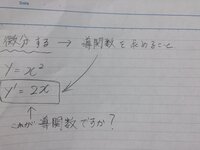 微分する → 導関数を求めること
y = x²
y' = 2x
これが導関数ですか?